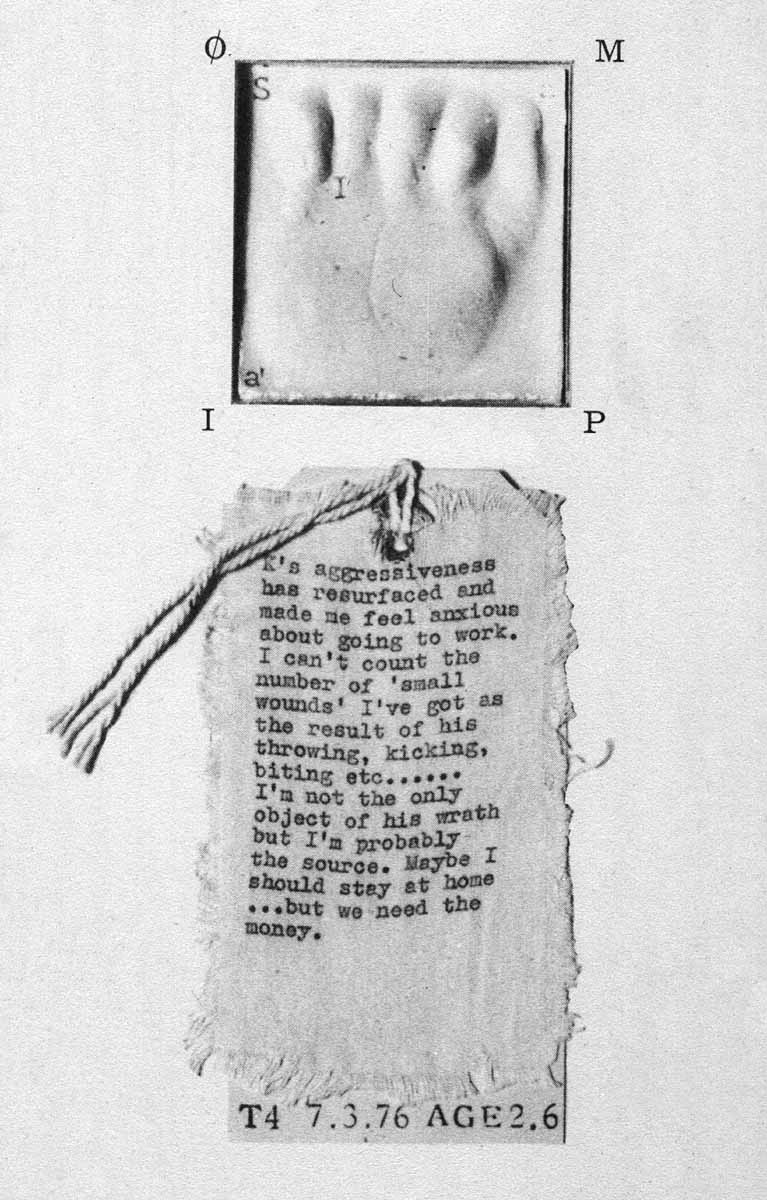 Ø M
S
I
a'
I P
K's aggressiveness
has resurfaced and
made me feel anxious
about going to work.
I can't count the
number of 'small
wounds' I've got as
the result of his
throwing, kicking,
biting etc......
I'm not the only
object of his wrath
but I'm probably
the source. Maybe I
should stay at home
...but we need the
money.
T4 7.3.76 AGE 2.6